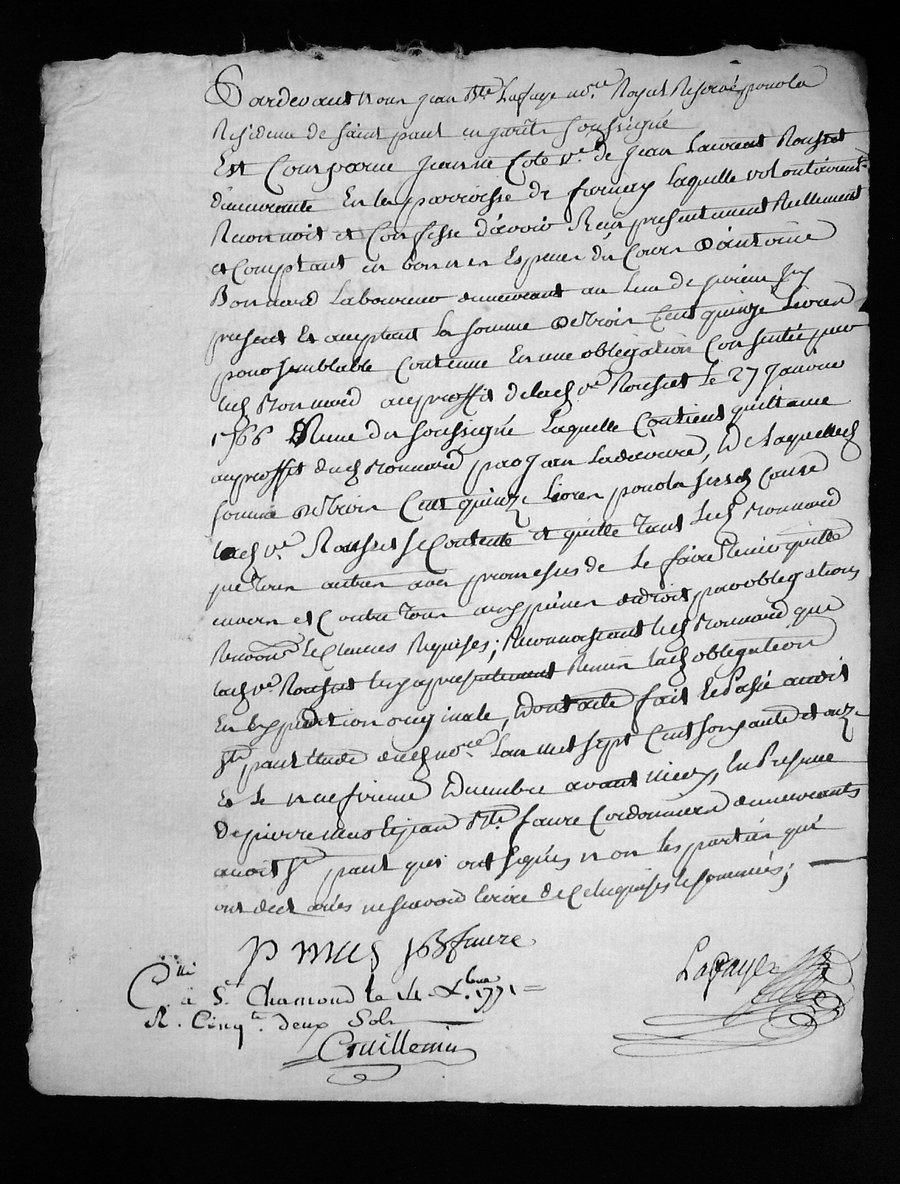 Pardevant Nous Jean Bte Lafaye nore Royal Reservé pour la
Residence de saint paul en jarêts soussigné
Est Comparüe jeanne Cote ve de jean Laurent Rousset
demeurante En la parroisse de farnay Laquelle volontairemt
Reconnoit et Confesse d'avoir Reçu presentement Réellement
et Comptant en bonnes Especes du Cours D'antoine
Bonnard Laboureur demeurant au Lieu de
present Et acceptant La somme De trois Cent quinze Livres
pour semblable Contenue En une obligation Consentie par
led Bonnard au proffit de lad ve Rousset Le 27 janvier
1766 Reçue du soussigné Laquelle Contient quittance
au proffit dud Bonnard par jean , De laquelle
somme De trois Cent quinze Livres pour la susd Cause
lad ve Rousset se Contente et quitte Tant Led Bonnard
que Tous autres avec promesses de Le faire Tenir quitte
envers et Contre Tous aux peines de droit par obligations
Renoons Et Clauses Requises; Reconnoissant led Bonnard que
lad ve Rousset luy a presentement Remis lad obligation
En Expedition originale, Dont acte fait Et Passé audit
St paul Etude dud nore L'an mil sept Cent soixante et onze
Et Le neufvieme Decembre avant midy, En Presence
De pierre mus et jean Bte faure Cordonniers demeurants
audit St paul qui ont signés non les parties qui
ont declarées ne sçavoir Ecrire de Ce Enquises et sommées;
P mus JB faure
Lafaye
Clle
à St Chamond le 14 Xbre 1771
R. Cinqte deux Sols
Guillemin